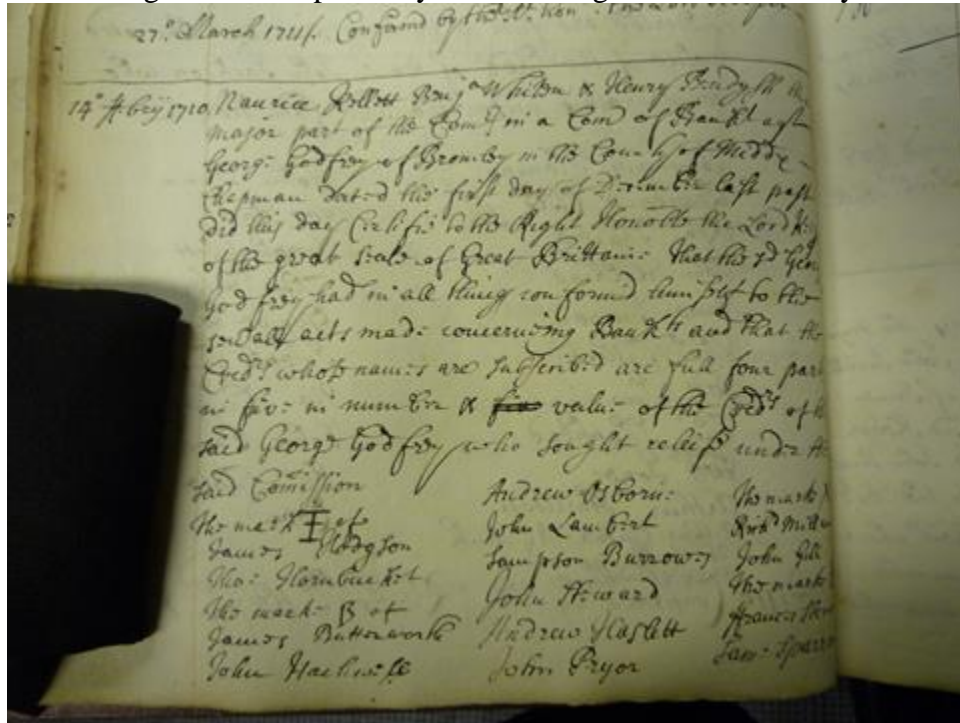 27.º March 1711/. Confirmd by the
14º ffebry 1710 Maurice Kellett Benjª Whitem & Henry Bendysh the
major part of the Comrs in a Com of Bankt agt
George Godfrey of Bromley in the County of Middx
Chapman dated the first day of December last past
did this day Certifie to the Right Honoble the Lord
of the great seale of Great Brittaine that the sd Geor
Godfrey had in all things conformd himself to the
severall acts made concerning Bankts and that the
Credrs whose names are subscribed are full four par
in five in number & five value of the Credrs of th
said George Godfrey who sought releife under the
said Comission
The mark I of
James Hodgson
Tho: Hornbucket
The marke B of
James Butterworth
John Hackwell
Andrew Osborne
John Lambert
Sampson Burrowes
John Heward
Andrew Haslett
John Pryor
The marke
Richd
John
The marke
Frances
Sam: Sparro